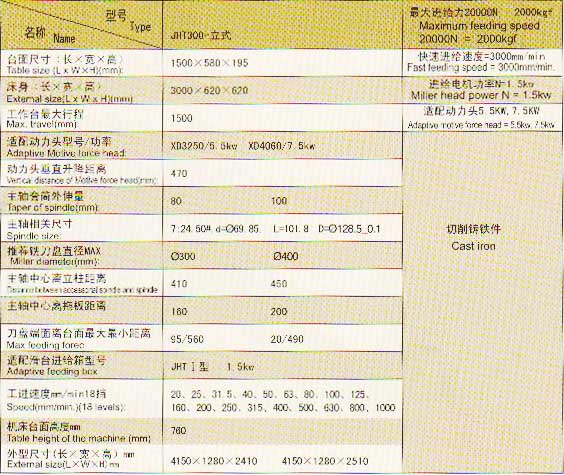 型号
Type
名称 Name
JHT300-立式
最大进给力20000N 2000kgf
Maximum feeding speed
20000N = 2000kgf
台面尺寸(长×宽×高)
Table size (L x W x H)(mm):
1500×580×195
快速进给速度=3000mm/min
Fast feeding speed = 3000mm/min.
床身(长×宽×高)
External size(L x W x H)(mm):
3000×620×620
进给电机功率N=1.5kw
Miller head power N = 1.5kw
工作台最大行程
Max. travel(mm):
1500
适配动力头5.5KW, 7.5KW
Adaptive motive force head = 5.5kw, 7.5kw
适配动力头型号/功率
Adaptive Motive force head:
XD3250/5.5kw XD4060/7.5kw
动力头垂直升降距离
Vertical distance of Motive force head(mm):
470
主轴套筒外伸量
Taper of spindle(mm):
80 100
主轴相关尺寸
Spindle size:
7:24.50#, d=Ø69.85 L=101.8 D=Ø128.5_0.1
推荐铣刀盘直径MAX
Miller diameter(mm):
Ø300 Ø400
切削铸铁件
Cast iron
主轴中心离立柱距离
Distance between accessorial spindle and spindle
410 450
主轴中心离拖板距离
160 200
刀盘端面离台面最大最小距离
Max feeding forec:
95/560 20/490
适配滑台进给箱型号
Adaptive feeding box
JHTⅠ型 1.5kw
工进速度mm/min18挡
Speed(mm/min.)(18 levels):
20、25、31.5、40、50、63、80、100、125、
160、200、250、315、400、500、630、800、1000
机床台面高度mm
Table height of the machine (mm)
760
外型尺寸(长×宽×高)mm
External size(L×W×H)mm
4150×1280×2410 4150×1280×2510